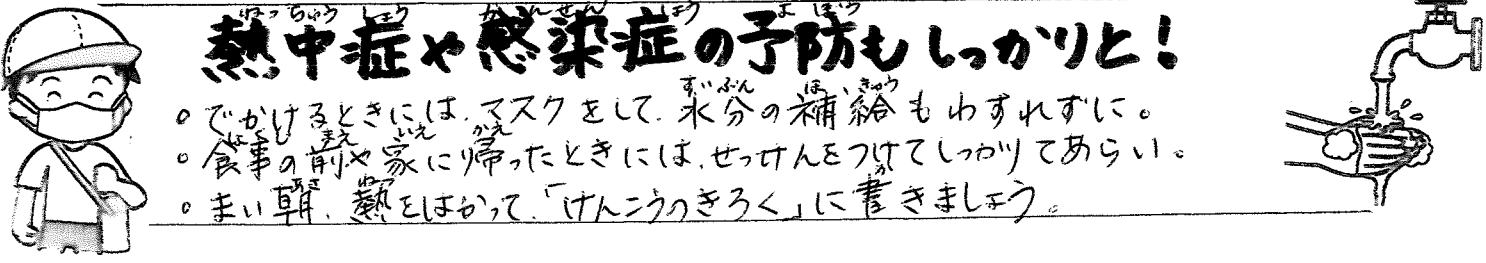 熱中症や感染症の予防もしっかりと！
。でかけるときには、マスクをして、水分の補給もわすれずに。
。食事の前や家に帰ったときには、せっけんをつけてしっかりてあらい。
。まい朝、熱をはかって、「けんこうのきろく」に書きましょう。